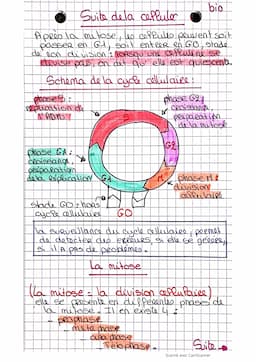 bio
Suite de la cellule
Après la mitose, les cellules peuvent soit
passer en G1, soit entrer en G0, stade
de non division : lorsqu'une cellule ne se
divise pas, on dit qu'elle est quiescente
Schéma de la cycle cellulaire :
phase S :
réplication de
l'ADN
phase G2 :
croissance,
préparation
de la mitose
S
G2
phase G1 :
croissance,
préparation
de la réplication
G1
M
phase M :
division
cellulaire
stade G0 : hors
cycle cellulaire
G0
la surveillance du cycle cellulaire, permet
de détecter des erreurs, si elle se génère,
si il n'a pas de problèmes.
La mitose
(La mitose = la division cellulaire)
elle se présente en différentes phases de
la mitose. Il en existe 4 :
- prophase
- métaphase
- anaphase
- Télophase.
Suite